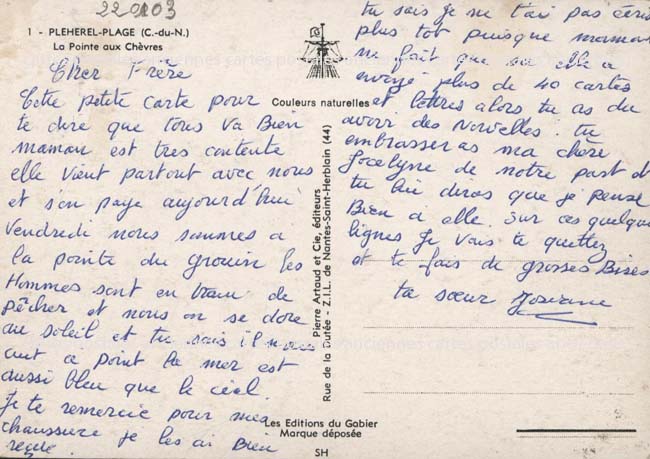 220103
1 - PLEHEREL-PLAGE (C.-du-N.)
La Pointe aux Chèvres
Cher Frère
Cette petite carte pour
te dire que tous va Bien
maman est tres contente
elle vient partout avec nous
et s'en paye aujourd'hui
vendredi nous sommes a
la pointe du grouin les
Hommes sont en train de
pêcher et nous on se dore
au soleil et tu sais il nous
cuit a point la mer est
aussi bleu que le ciel.
Je te remercie pour mes
chaussure je les ai Bien
reçue.
Couleurs naturelles
Pierre Artaud et Cie, éditeurs
Rue de la Dutée - Z.I.L. de Nantes-Saint-Herblain (44)
Les Editions du Gabier
Marque déposée
SH
tu sais je ne t'ai pas écris
plus tot puisque maman
ne fait que sa elle a
envoyé plus de 40 cartes
et lettres alors tu as du
avoir des nouvelles. tu
embrasseras ma chère
Jocelyne de notre part et
tu lui diras que je pense
Bien a elle. sur ces quelques
lignes Je vais te quittez
et te fais de grosses Bises
ta sœur Josiane